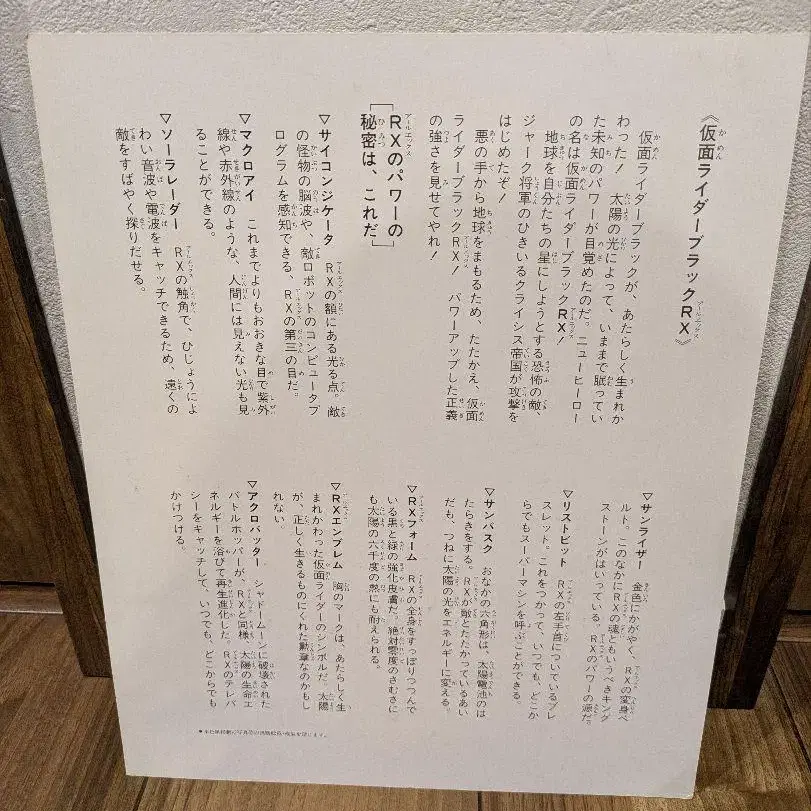 《仮面ライダーブラックRX》
仮面ライダーブラックが、あたらしく生まれか
わった! 太陽の光によって、いままで眠ってい
た未知のパワーが目覚めたのだ。ニューヒーロー
の名は仮面ライダーブラックRX!
地球を自分たちの星にしようとする恐怖の敵、
ジャーク将軍のひきいるクライシス帝国が攻撃を
はじめたぞ!
悪の手から地球をまもるため、たたかえ、仮面
ライダーブラックRX! パワーアップした正義
の強さを見せてやれ!
[RXのパワーの
秘密は、これだ]
▽サイコンジケータ RXの額にある光る点。敵
の怪物の脳波や、敵ロボットのコンピュータプ
ログラムを感知できる、RXの第三の目だ。
▽マクロアイ これまでよりもおおきな目で紫外
線や赤外線のような、人間には見えない光も見
ることができる。
▽ソーラレーダー RXの触角で、ひじょうによ
わい音波や電波をキャッチできるため、遠くの
敵をすばやく探りだせる。
▽サンライザー 金色にかがやく、RXの変身ベ
ルト。このなかにRXの魂ともいうべきキング
ストーンがはいっている。RXのパワーの源だ。
▽リストビット RXの左手首についているブレ
スレット。これをつかって、いつでも、どこか
らでもスーパーマシンを呼ぶことができる。
▽サンバスク おなかの六角形は、太陽電池のは
たらきをする。RXが敵とたたかっているあい
だも、つねに太陽の光をエネルギーに変える。
▽RXフォーム RXの全身をすっぽりつつんで
いる黒と緑の強化皮膚だ。絶対零度のさむさに
も太陽の六千度の熱にも耐えられる。
▽RXエンブレム 胸のマークは、あたらしく生
まれかわった仮面ライダーのシンボルだ。太陽
が、正しく生きるものにくれた勲章なのかもし
れない。
▽アクロバッター シャドームーンに破壊された
バトルホッパーが、RXと同様、太陽の生命エ
ネルギーを浴びて再生進化した。RXのテレパ
シーをキャッチして、いつでも、どこからでも
かけつける。